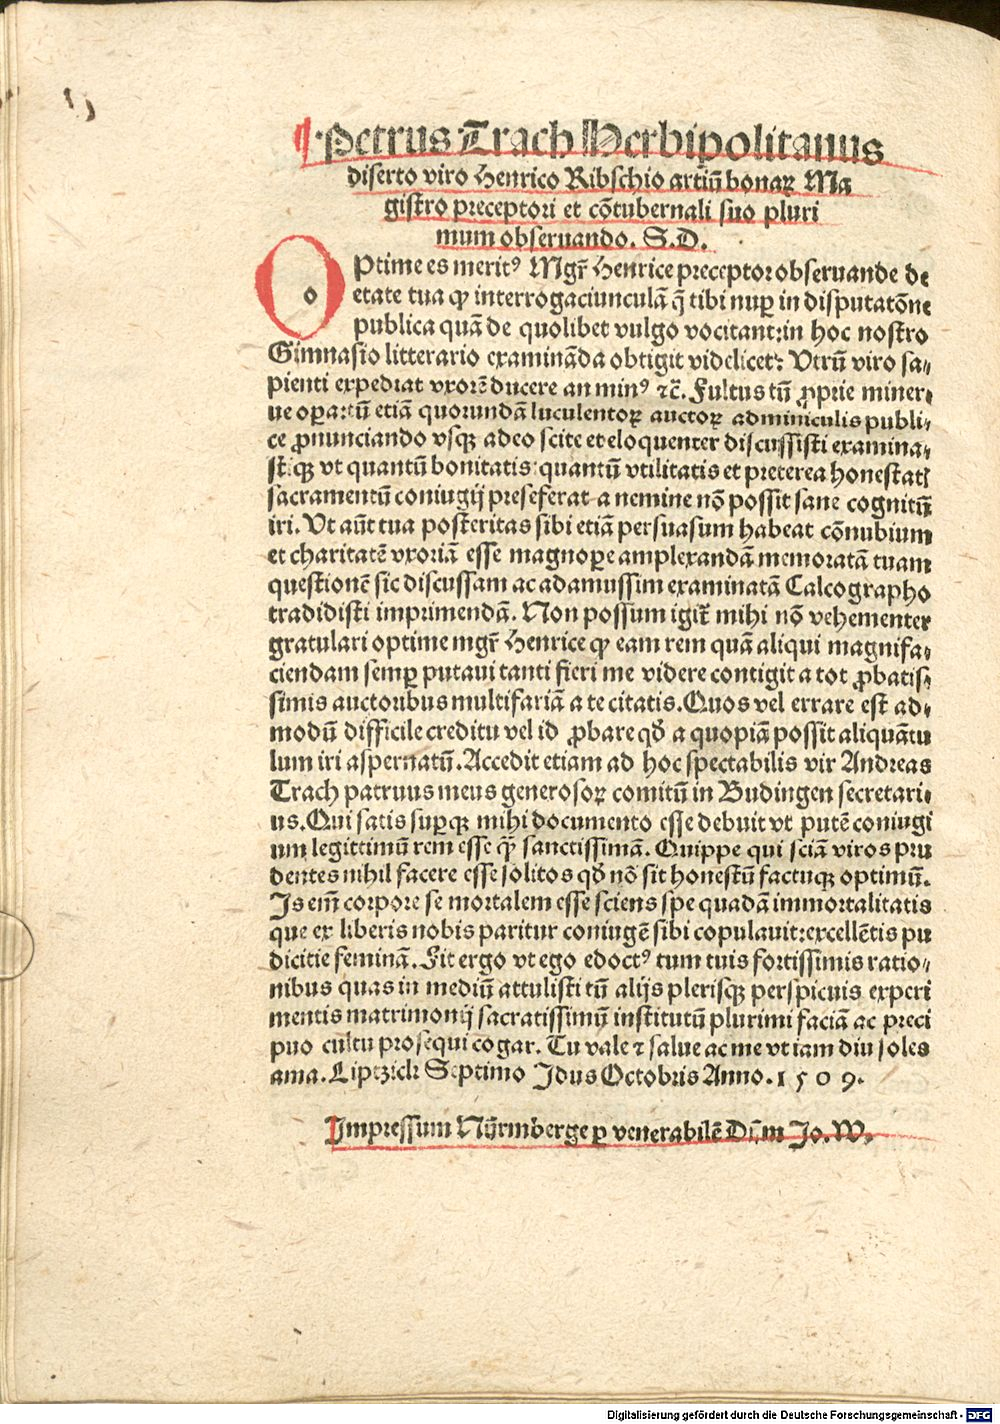 ¶ Petrus Trach Herbipolitanus
diserto viro Henrico Ribschio artiū bonaꝝ Ma
gistro preceptori et cōtubernali suo pluri
mum obseruando. S.D.
OPtime es meritꝰ Mgr̄ Henrice preceptor obseruande de
etate tua ꝙ interrogaciunculā q̄ tibi nuꝑ in disputatōne
publica quā de quolibet vulgo vocitant: in hoc nostro
Gimnasio litterario examināda obtigit videlicet: Vtrū viro sa⸗
pienti expediat vxorē ducere an minꝰ ⁊c̄. Fultus tū ꝓprie miner⸗
ue oꝑ artū etiā quorundā luculentoꝝ auctoꝝ adminiculis publi⸗
ce ꝓnunciando vsqꝫ adeo scite et eloquenter discussisti examina⸗
stiqꝫ vt quantū bonitatis: quantū vtilitatis et preterea honestatꝭ
sacramentū coniugij preseferat a nemine nō possit sane cognitū
iri. Vt aūt tua posteritas sibi etiā persuasum habeat cōnubium
et charitatē vxoriā esse magnoꝑe amplexandā memoratā tuam
questionē sic discussam ac adamussim examinatā Calcographo
tradidisti imprimendā. Non possum igit̄ mihi nō vehementer
gratulari optime mgr̄ Henrice ꝙ eam rem quā aliqui magnifa⸗
ciendam semꝑ putaui tanti fieri me videre contigit a tot ꝓbatis⸗
simis auctoribus multifariā a te citatis. Quos vel errare est ad⸗
modū difficile creditu vel id ꝓbare qd̄ a quopiā possit aliquātu
lum iri aspernatū. Accedit etiam ad hoc spectabilis vir Andreas
Trach patruus meus generosoꝝ comitū in Budingen secretari⸗
us. Qui satis suꝑqꝫ mihi documento esse debuit vt putē coniugi
um legittimū rem esse ꝙ̄ sanctissimā. Quippe qui sciā viros pru
dentes nihil facere esse solitos qd̄ nō sit honestū factuqꝫ optimū.
Is em̄ corpore se mortalem esse sciens spe quadā immortalitatis
que ex liberis nobis paritur coniugē sibi copulauit: excellētis pu
dicitie feminā. Fit ergo vt ego edoctꝰ tum tuis fortissimis ratio⸗
nibus quas in mediū attulisti tū alijs plerisqꝫ perspicuis experi
mentis matrimonij sacratissimū institutū plurimi faciā ac preci
puo cultu prosequi cogar. Tu vale ⁊ salue ac me vt iam diu soles
ama. Liptzick Septimo Idus Octobris Anno. 1509.
Impressum Nürmberge ꝑ venerabilē Dn̄m Jo. W.
Digitalisierung gefördert durch die Deutsche Forschungsgemeinschaft - DFG